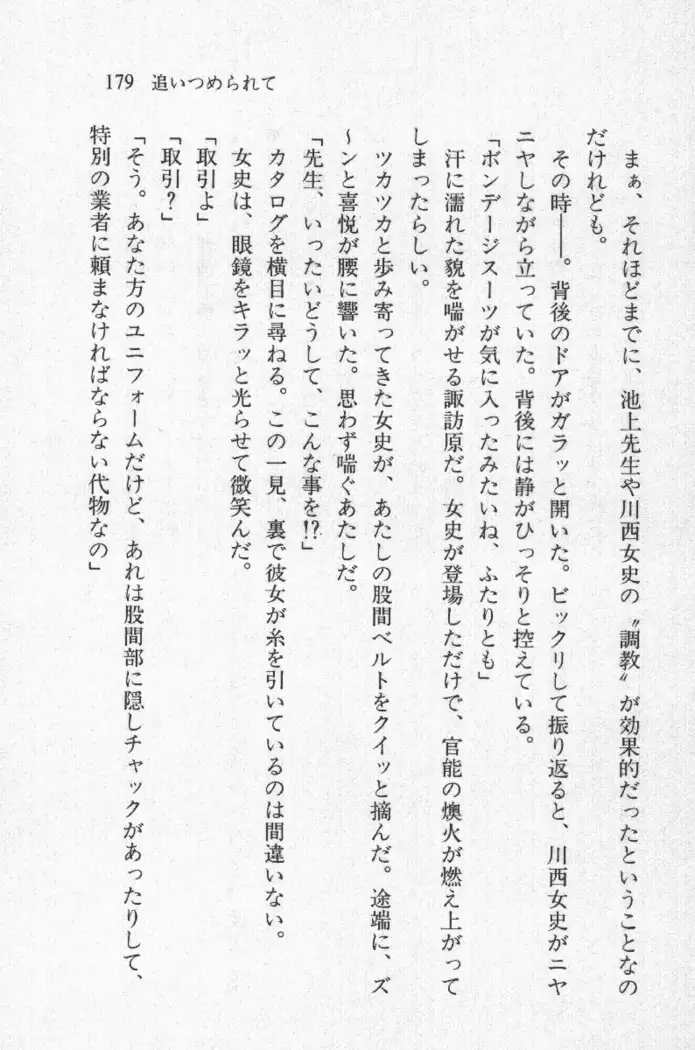 179 追いつめられて
まぁ、それほどまでに、池上先生や川西女史の〝調教〟が効果的だったということなの
だけれども。
その時――。背後のドアがガラッと開いた。ビックリして振り返ると、川西女史がニヤ
ニヤしながら立っていた。背後には静がひっそりと控えている。
「ボンデージスーツが気に入ったみたいね、ふたりとも」
汗に濡れた貌を喘がせる諏訪原だ。女史が登場しただけで、官能の燠火が燃え上がって
しまったらしい。
ツカツカと歩み寄ってきた女史が、あたしの股間ベルトをクイッと摘んだ。途端に、ズ
〜ンと喜悦が腰に響いた。思わず喘ぐあたしだ。
「先生、いったいどうして、こんな事を!?」
カタログを横目に尋ねる。この一見、裏で彼女が糸を引いているのは間違いない。
女史は、眼鏡をキラッと光らせて微笑んだ。
「取引よ」
「取引？」
「そう。あなた方のユニフォームだけど、あれは股間部に隠しチャックがあったりして、
特別の業者に頼まなければならない代物なの」